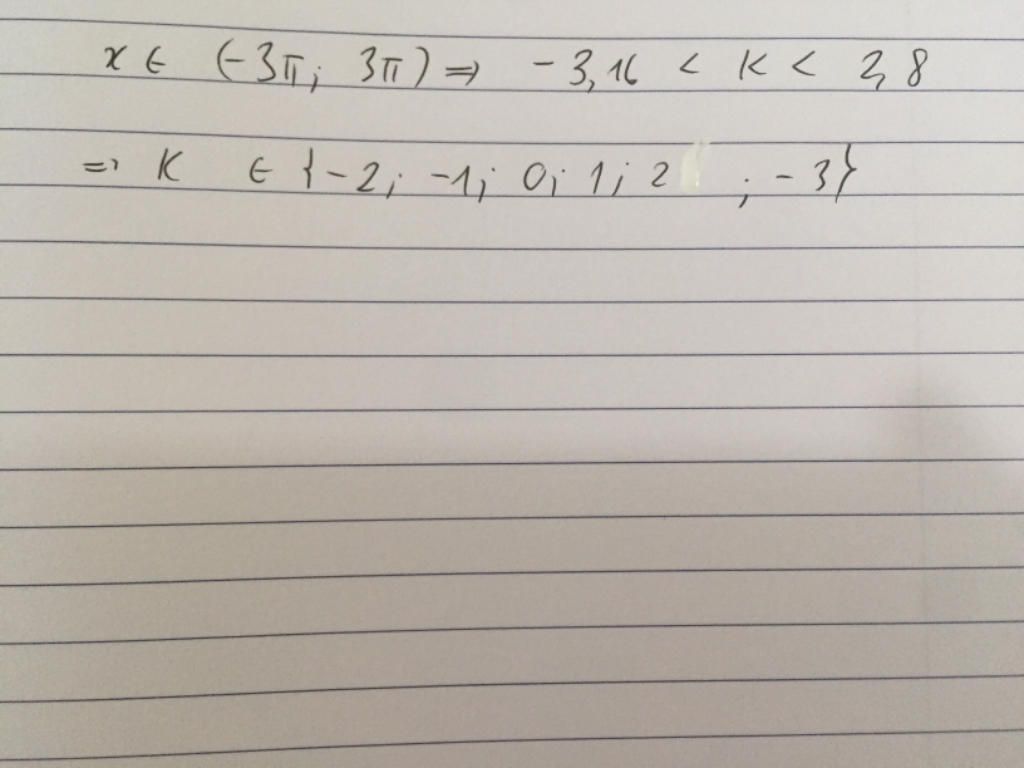 x ∈ (-3π; 3π) => -3,16 < K < 2,8
=> K ∈ {-2; -1; 0; 1; 2 ; -3}